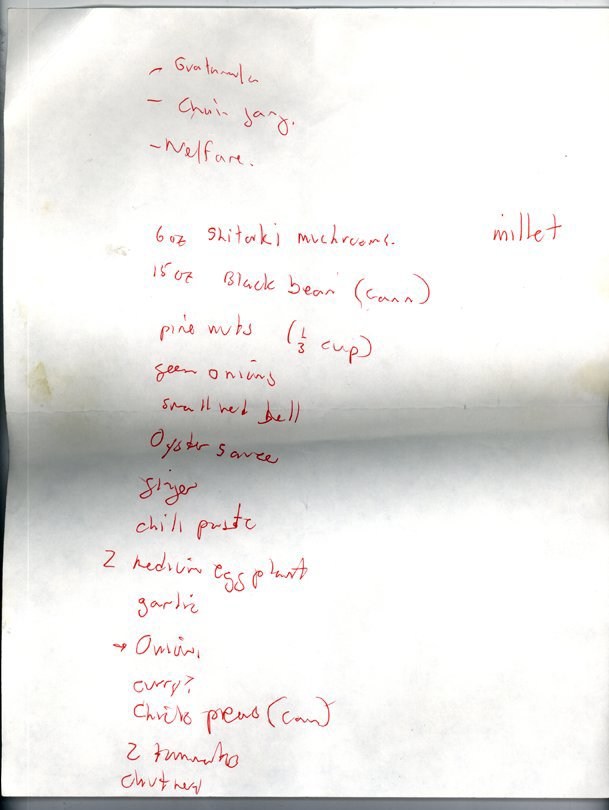 - Guatamala
- Chain gang.
- Welfare.
6 oz Shitarki muchrooms. millet
15 oz Black bean (cann)
pine nuts (1/3 cup)
geen onions
small red bell
Oyster sauce
ginger
chili paste
2 medium eggplant
garlic
→ Onion,
curry?
Chick peas (can)
2 tomato
chutney